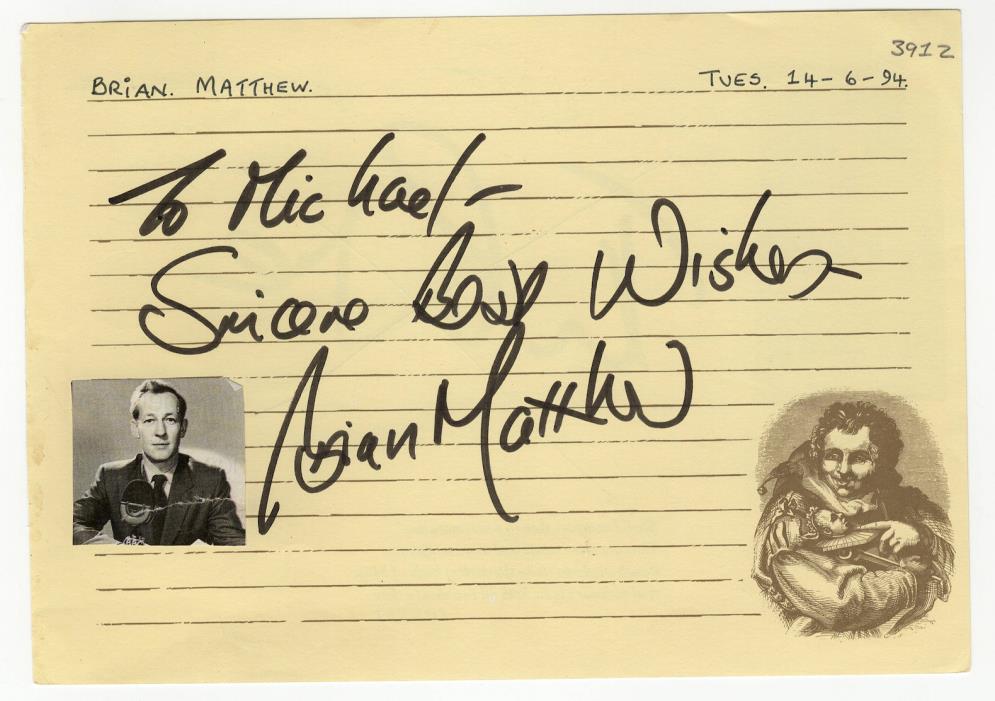 3912
BRIAN. MATTHEW. TUES. 14-6-94.
To Michael-
Sincere Best Wishes
Brian Matthew